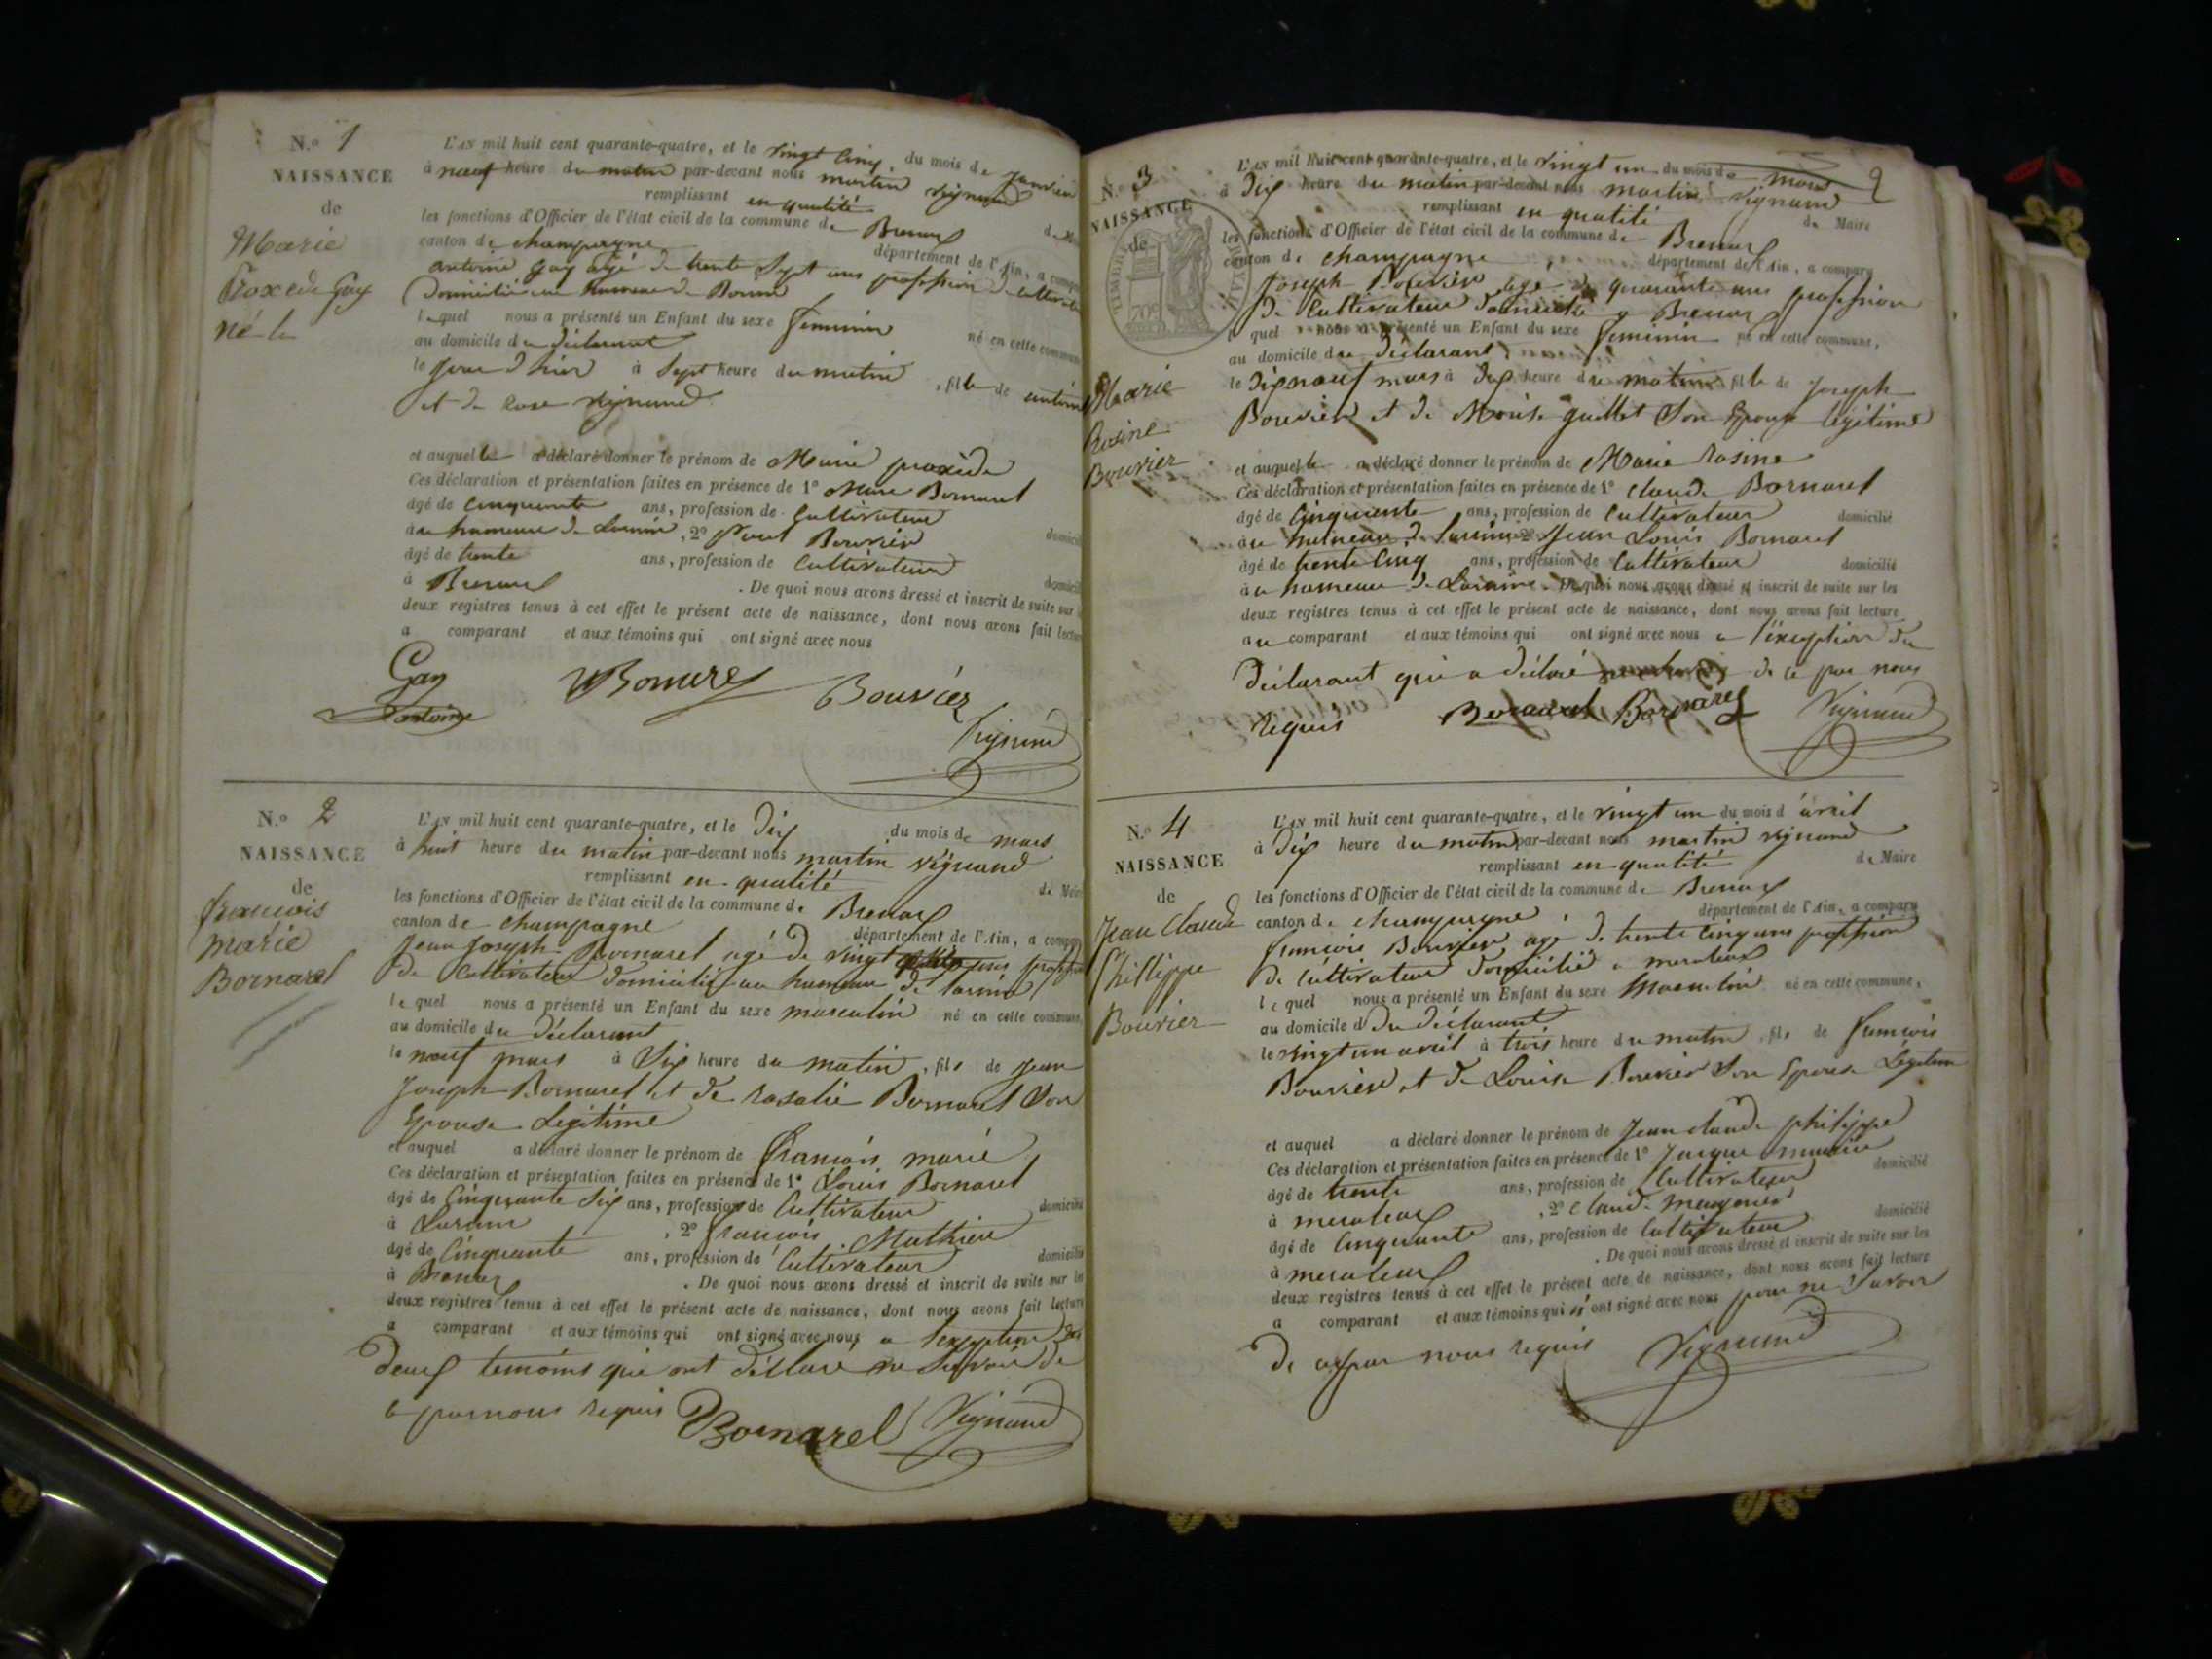 N.º 1
NAISSANCE
de
Marie
Proxede Gay
né le
L'AN mil huit cent quarante-quatre, et le vingt cinq du mois de janvier
à neuf heure du matin par-devant nous martin vignand
remplissant en qualité
les fonctions d'Officier de l'état civil de la commune de Brenaz
canton de champagne département de l'Ain, a
antoine gay agé de trente sept ans profession de
Domicilié au hameau de
lequel nous a présenté un Enfant du sexe feminin né en cette
au domicile du déclarant
le jour d'hier à sept heure du matin, fille de antoine
et de rose vignand
et auquel le a déclaré donner le prénom de Marie proxede
Ces déclaration et présentation faites en présence de 1º Bornarel
âgé de cinquante ans, profession de Cultivateur
au hameau de , 2º Bouvier
âgé de trente ans, profession de Cultivateur
à Brenaz . De quoi nous avons dressé et inscrit de suite sur
deux registres tenus à cet effet le présent acte de naissance, dont nous avons fait
a comparant et aux témoins qui ont signé avec nous
Gay Bornarel Bouvier
antoine
Vignand
N.º 2
NAISSANCE
de
françois
marie
Bornarel
L'AN mil huit cent quarante-quatre, et le dix du mois de mars
à huit heure du matin par-devant nous martin vignand
remplissant en qualité de
les fonctions d'Officier de l'état civil de la commune de Brenaz
canton de champagne département de l'Ain, a
Jean Joseph Bornarel agé de vingt ans
de Cultivateur domicilié au hameau de
lequel nous a présenté un Enfant du sexe masculin né en cette commune
au domicile du déclarant
le neuf mars à six heure du matin, fils de jean
joseph Bornarel et de rosalie Bornarel son
Epouse Legitime
et auquel a déclaré donner le prénom de françois marie
Ces déclaration et présentation faites en présence de 1º Louis Bornarel
âgé de cinquante six ans, profession de Cultivateur domicilié
à , 2º françois Mathieu
âgé de cinquante ans, profession de Cultivateur domicilié
à Brenaz . De quoi nous avons dressé et inscrit de suite sur les
deux registres tenus à cet effet le présent acte de naissance, dont nous avons fait lecture
a comparant et aux témoins qui ont signé avec nous a l'exception des
deux temoins qui ont déclaré ne savoir de
ce par nous requis Bornarel Vignand
2
N.º 3
NAISSANCE
de
TIMBRE ROYAL
70c
Marie
Rosine
Bouvier
L'AN mil huit cent quarante-quatre, et le vingt un du mois de mars
à dix heure du matin par-devant nous martin vignand
remplissant en qualité de Maire
les fonctions d'Officier de l'état civil de la commune de Brenaz
canton de champagne département de l'Ain, a comparu
Joseph Bouvier agé de quarante ans profession
de Cultivateur domicilié a Brenaz
quel nous a présenté un Enfant du sexe feminin né en cette commune,
au domicile du déclarant
le dix neuf mars à dix heure du matin, fille de joseph
Bouvier et de guillet son Epouse legitime
et auquel le a déclaré donner le prénom de Marie rosine
Ces déclaration et présentation faites en présence de 1º claude Bornarel
âgé de cinquante ans, profession de Cultivateur domicilié
au hameau de 2º Jean Louis Bornarel
âgé de trente cinq ans, profession de Cultivateur domicilié
au hameau de . De quoi nous avons dressé et inscrit de suite sur les
deux registres tenus à cet effet le présent acte de naissance, dont nous avons fait lecture
au comparant et aux témoins qui ont signé avec nous a l'exception du
déclarant qui a déclaré de ce par nous
requis Bornarel Bornarel Vignand
N.º 4
NAISSANCE
de
Jean Claude
Philippe
Bouvier
L'AN mil huit cent quarante-quatre, et le vingt un du mois d'avril
à dix heure du matin par-devant nous martin vignand
remplissant en qualité de Maire
les fonctions d'Officier de l'état civil de la commune de Brenaz
canton de champagne département de l'Ain, a comparu
françois Bouvier agé de trente cinq ans profession
de cultivateur domicilié a
lequel nous a présenté un Enfant du sexe masculin né en cette commune,
au domicile d du déclarant
le vingt un avril à trois heure du matin, fils de françois
Bouvier et de Louise Bouvier son Epouse Légitime
et auquel a déclaré donner le prénom de Jean claude philippe
Ces déclaration et présentation faites en présence de 1º
âgé de trente ans, profession de Cultivateur domicilié
à , 2º Claude
âgé de cinquante ans, profession de Cultivateur domicilié
à . De quoi nous avons dressé et inscrit de suite sur les
deux registres tenus à cet effet le présent acte de naissance, dont nous avons fait lecture
a comparant et aux témoins qui n'ont signé avec nous pour ne savoir
de ce par nous requis Vignand